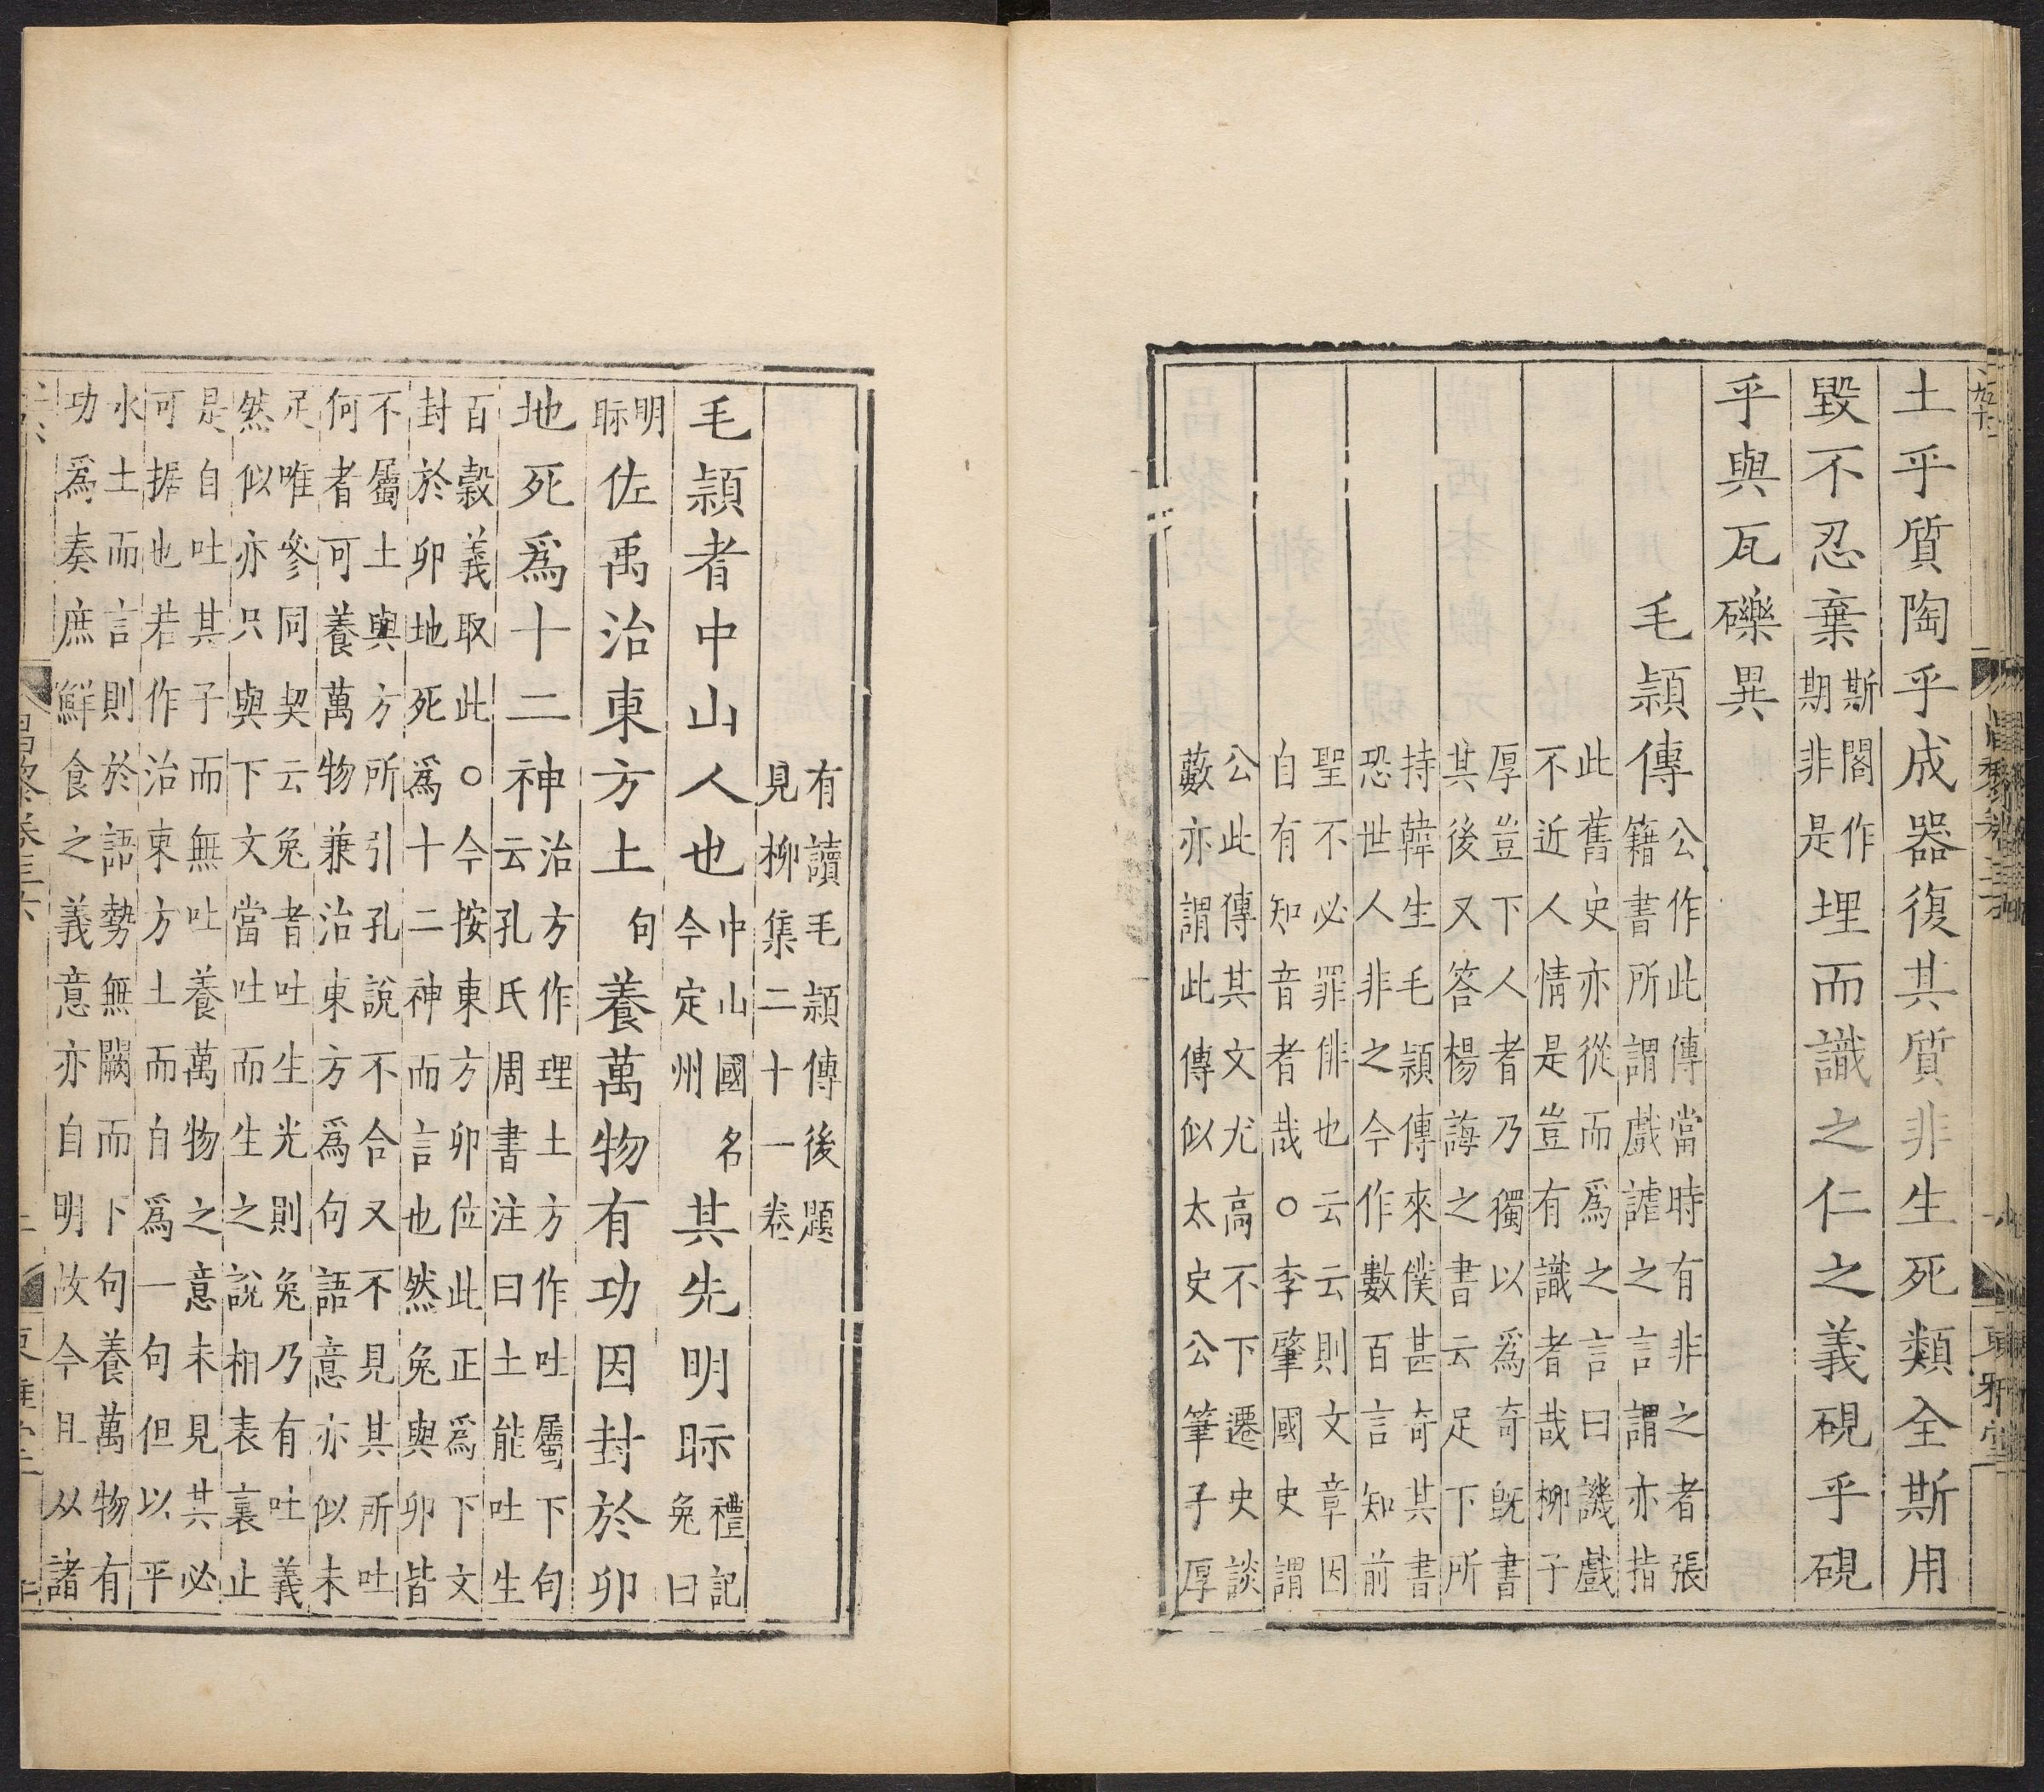 土乎質陶乎成器復其質非生死類全斯用
毀不忍棄斯閣作期非是埋而識之仁之義硯乎硯
乎與瓦礫異
毛頴傳公作此傳當時有非之者張籍書所謂戲謔之言謂亦指
此舊史亦從而爲之言曰譏戲不近人情是豈有識者哉柳子
厚豈下人者乃獨以爲奇旣書其後又答楊誨之書云足下所
持韓生毛頴傳來僕甚奇其書恐世人非之今作數百言知前
聖不必罪俳也云云則文章因自有知音者哉○李肇國史謂
公此傳其文尤高不下遷史談藪亦謂此傳似太史公筆子厚
有讀毛頴傳後題見柳集二十一卷
毛頴者中山人也中山國名今定州其先明眎禮記兔曰
明眎佐禹治東方土句養萬物有功因封於卯
地死爲十二神治方作理土方作吐屬下句云孔氏周書注曰土能吐生
百穀義取此○今按東方卯位此正爲下文封於卯地死爲十二神而言也然兔與卯皆
不屬土與方所引孔說不合又不見其所吐何者可養萬物兼治東方爲句語意亦似未
足唯參同契云兔者吐生光則兔乃有吐義然似亦只與下文當吐而生之說相表裏止
是自吐其子而無吐養萬物之意未見其必可据也若作治東方土而自爲一句但以平
水土而言則於語勢無闕而下句養萬物有功爲奏庶鮮食之義意亦自明故今且从諸
昌黎卷三六